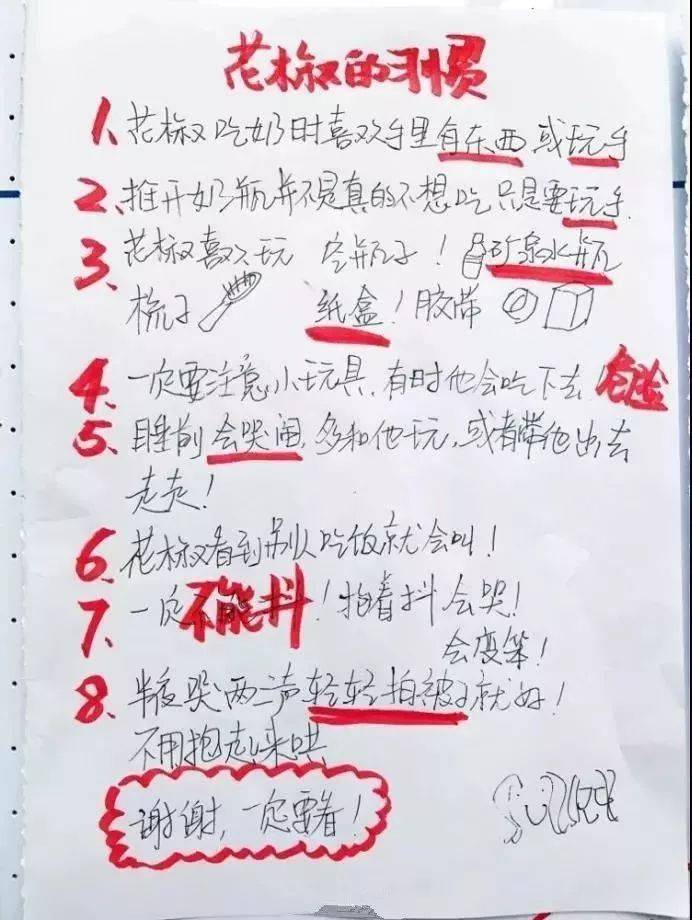 花椒的习惯
1、花椒吃奶时喜欢手里有东西或玩手
2、推开奶瓶并不是真的不想吃只是要玩手.
3、花椒喜欢玩 空瓶子！矿泉水瓶
梳子 纸盒！胶带
4、一定要注意小玩具.有时他会吃下去 危险
5、睡前会哭闹,多和他玩,或者带他出去
走走！
6、花椒看到别人吃饭就会叫！
7、一定不能抖！抱着抖会哭！
会变笨！
8、半夜哭两三声轻轻拍被子就好！
不用抱起来哄
谢谢,一定要看！